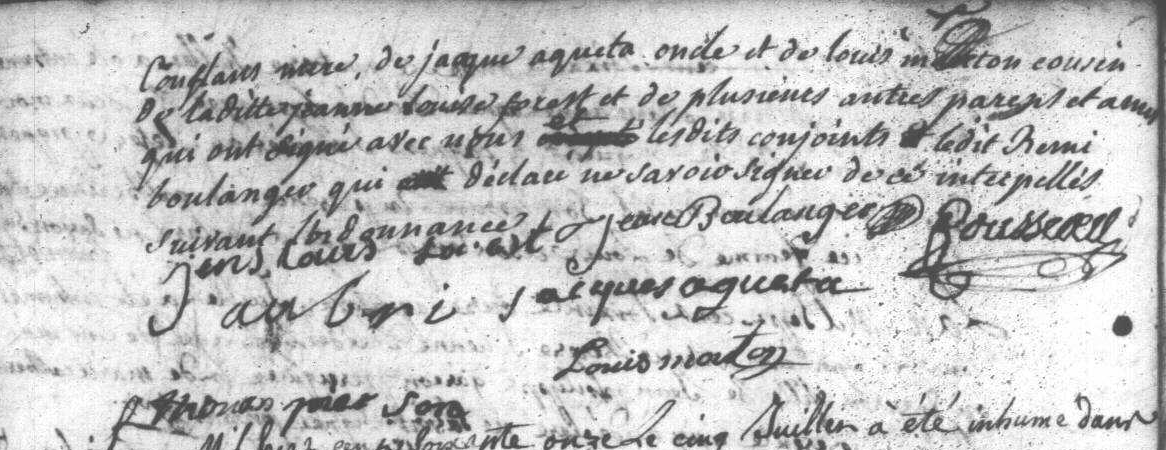 Conflans mere, de jacque aqueta oncle et de louis maton cousin
de laditte jeanne Louise forest et de plusieurs autres parens et amis
qui ont signé avec nous lesdits conjoints et ledit Remi
boulanger qui déclare ne savoir signer de ce interpellés
suivant lordonnance Jean Boulanger Rousseau
jens Louis forest
J aubri jacques aqueta
Louis maton
thomas pierson
Mil sept cent soixante onze Le cinq Juillet à été inhumé dans